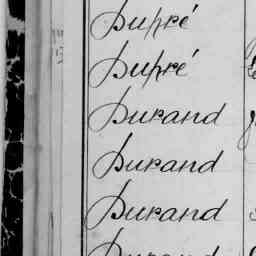 Dupré
Dupré
Durand
Durand
Durand
Durand